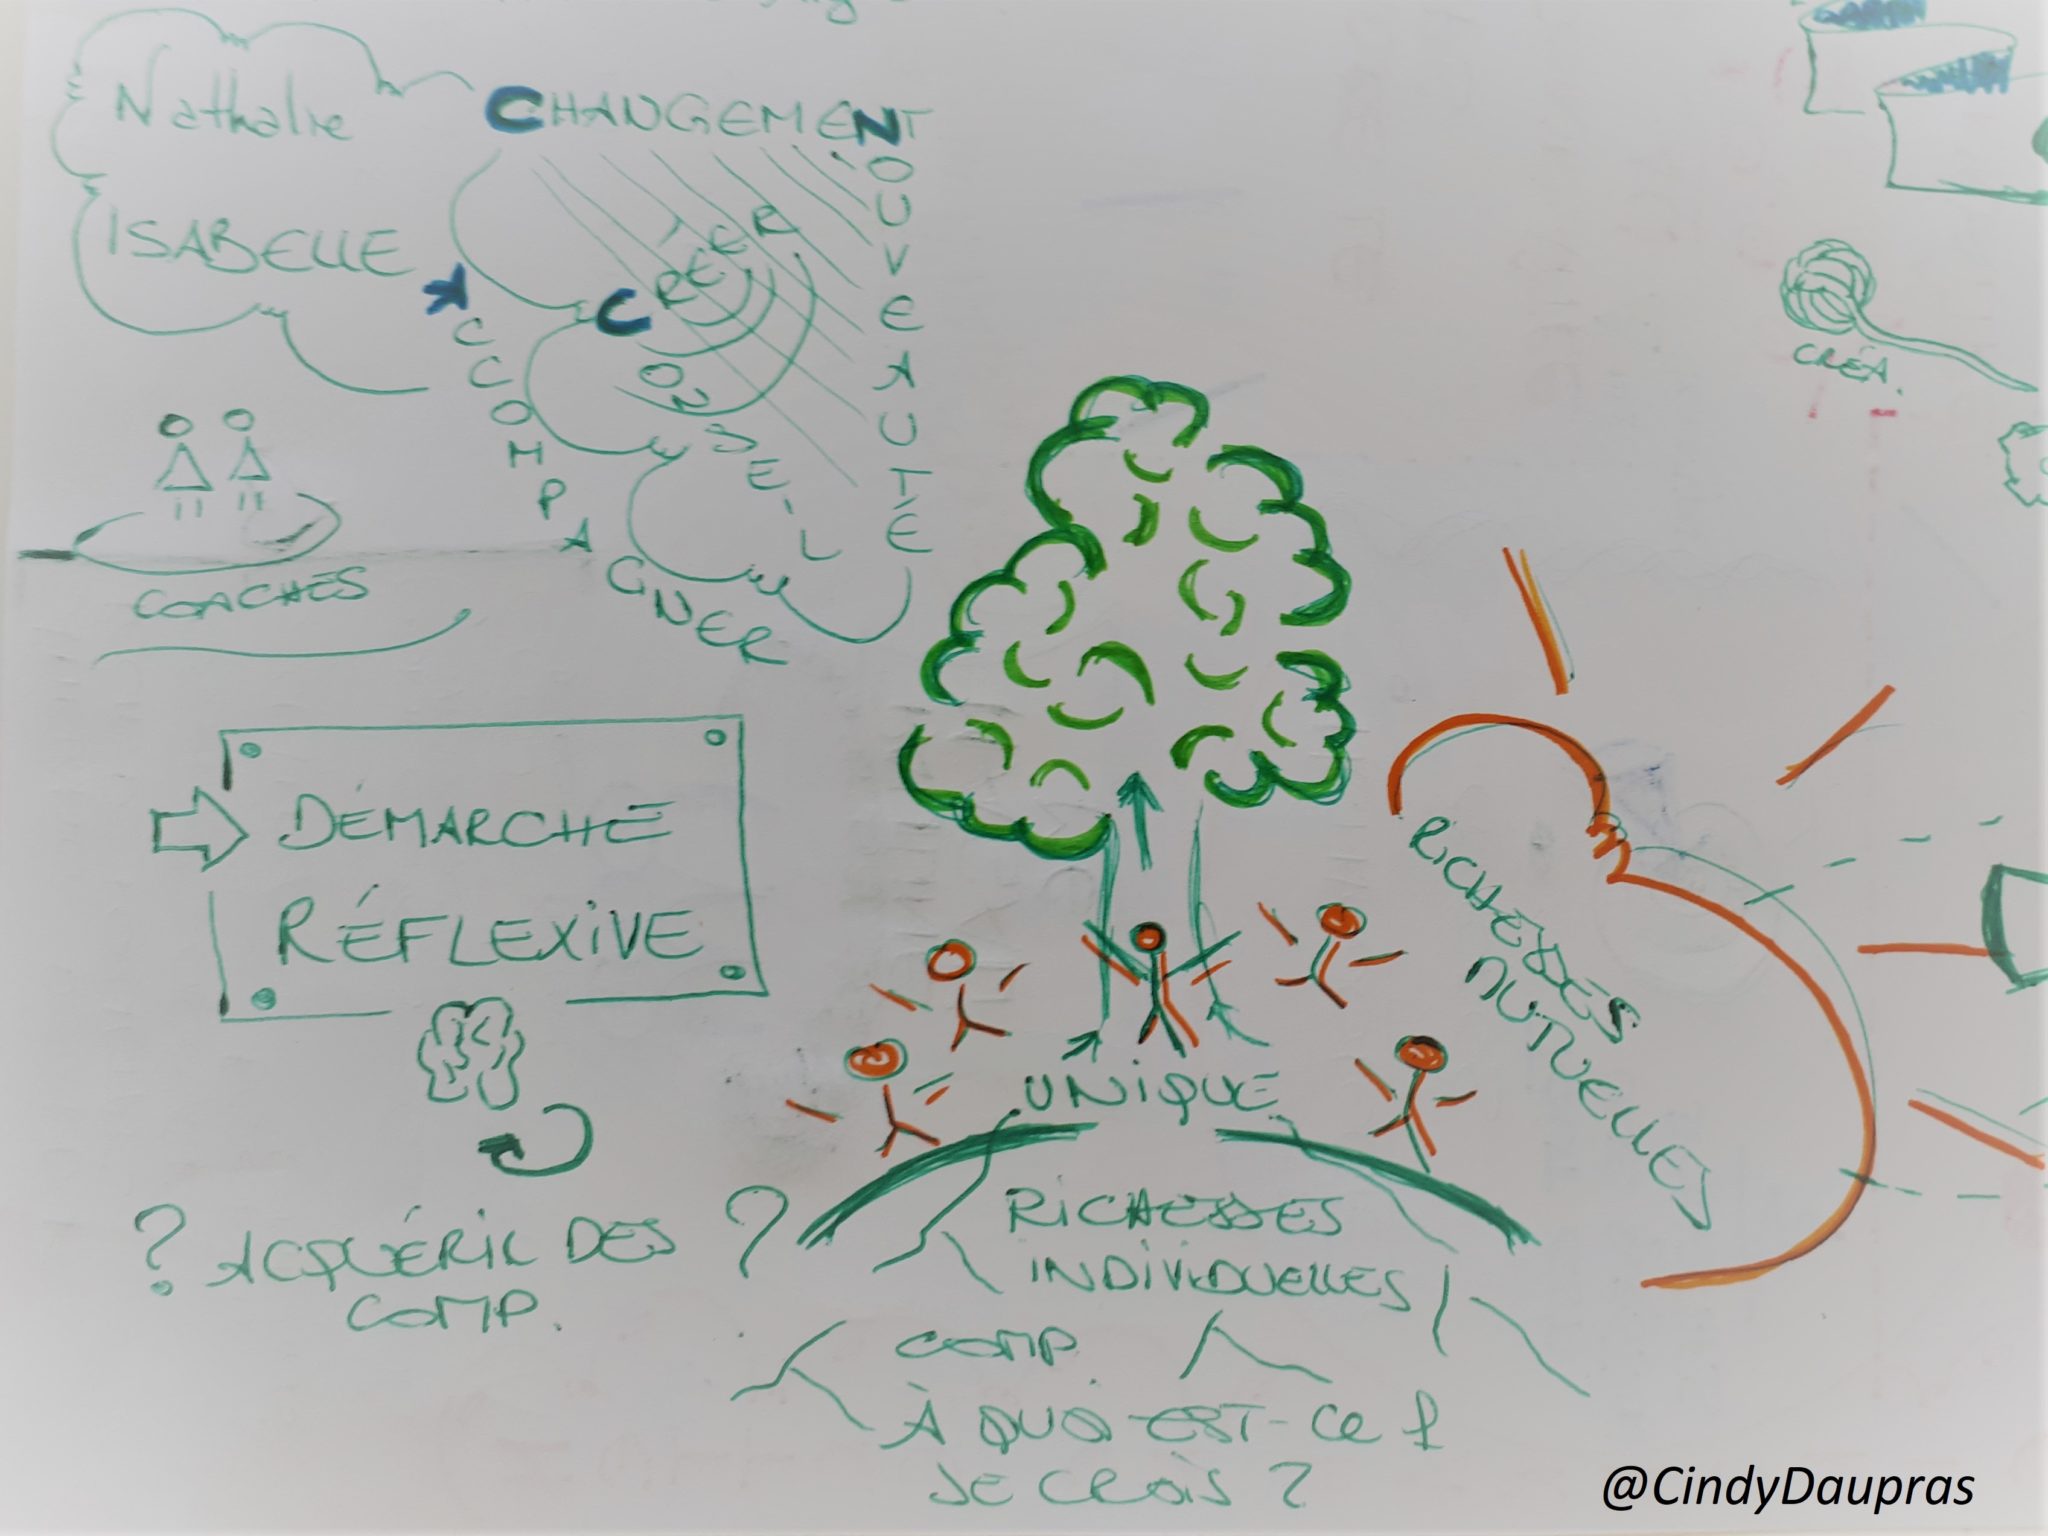 Nathalie
ISABELLE
CHANGEMENT
NOUVEAUTÉ
CRÉER
CONSEIL
ACCOMPAGNER
COACHES
CRÉA.
DÉMARCHE
RÉFLEXIVE
? ACQUÉRIR DES ?
COMP.
RICHESSES
MUTUELLES
UNIQUE
RICHESSES
INDIVIDUELLES
COMP
À QUOI EST-CE q
JE CROIS ?
@CindyDaupras